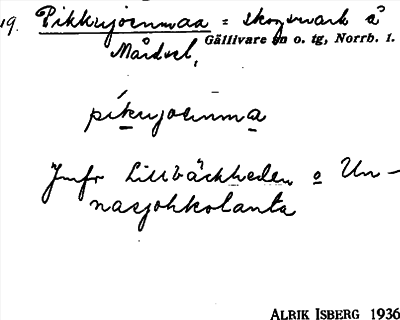 19. Pikkujoenmaa = skogsmark å
Gällivare sn o. tg, Norrb. l.
Mårdsel,
pikujoenma
Jmfr Lillbäckheden o Un-
nasjohkolanta
ALRIK ISBERG 1936